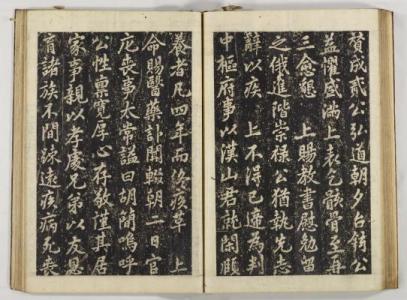 贊成貳公弘道朝夕台鉉公
益懼盛滿上表乞骸骨至再
三念愈 上賜教書慰勉留
之俄進階崇祿公猶執先志
辭以疾 上不得已遞為判
中樞府事以漢山君就閑頤
養者凡四年而後疾革 上
命賜醫藥訃聞輟朝一日官
庀喪事太常謚曰胡簡嗚呼
公性稟寬厚心存敬謹其居
家事親以孝處兄弟以友恩
肩諸族不間疎遠疾病死喪